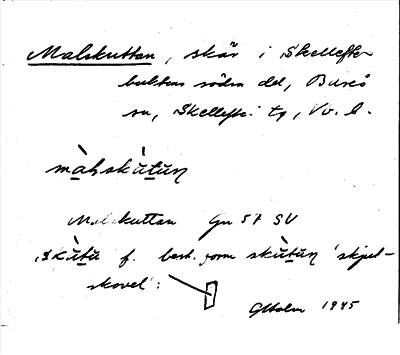 Malskuttan, skär i Skellefte-
buktens södra del, Bureå
sn, Skellefte tg, Vb. l.
màhskùtun
Malskuttan Gn 57 SV
skùtu f. best. form skùtun 'skjut-
skovel':
GHolm 1945